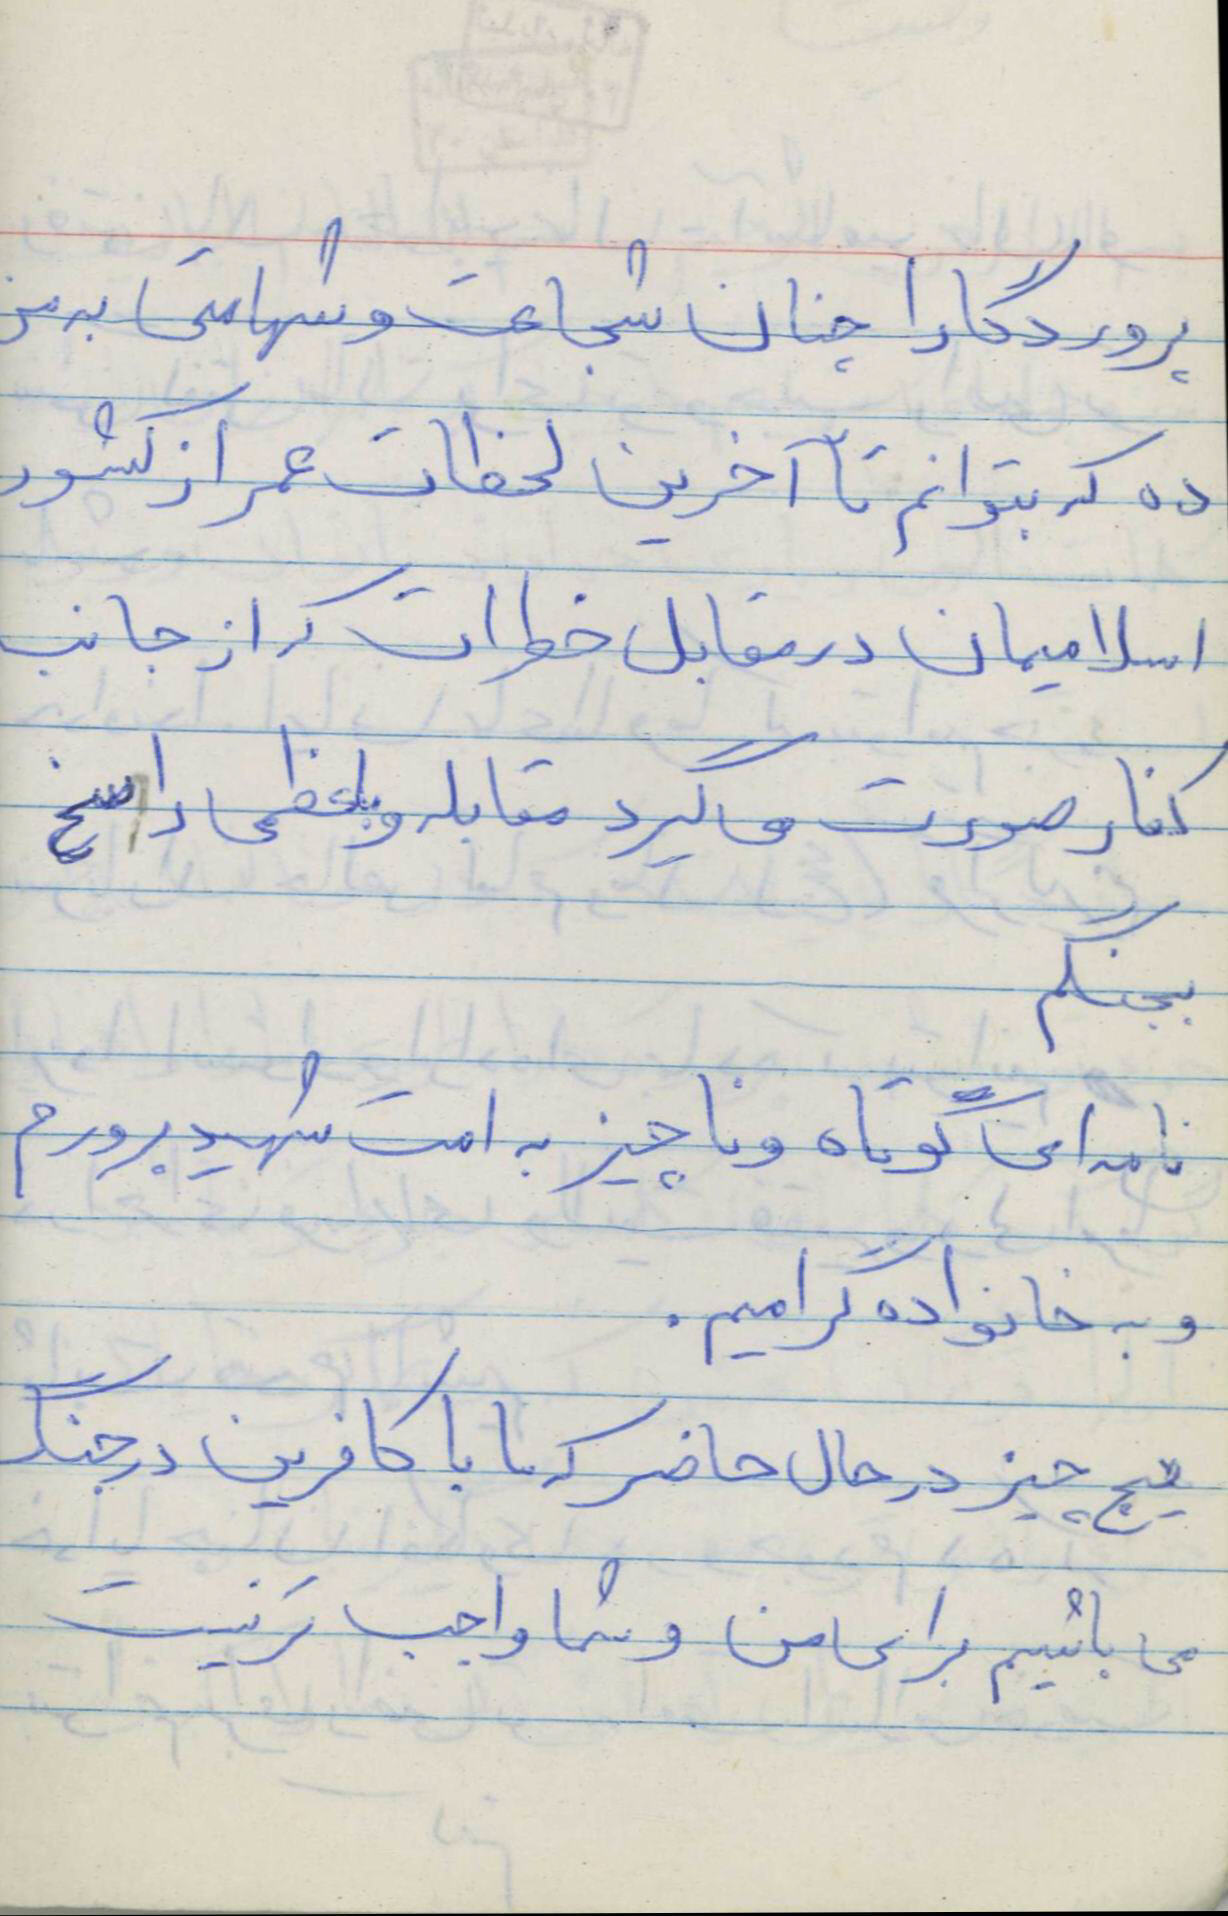 پروردگارا چنان شجاعت و شهامتی به من
ده که بتوانم تا آخرین لحظات عمر از کشور
اسلامیمان در مقابل خطرات که از جانب
کفار صورت می گیرد مقابله و با عزمی راسخ
بجنگم
نامه ای کوتاه و ناچیز به امت شهید پرورم
و به خانواده گرامیم .
هیچ چیز در حال حاضر که ما با کافرین در جنگ
می باشیم برای من و شما واجب تر نیست